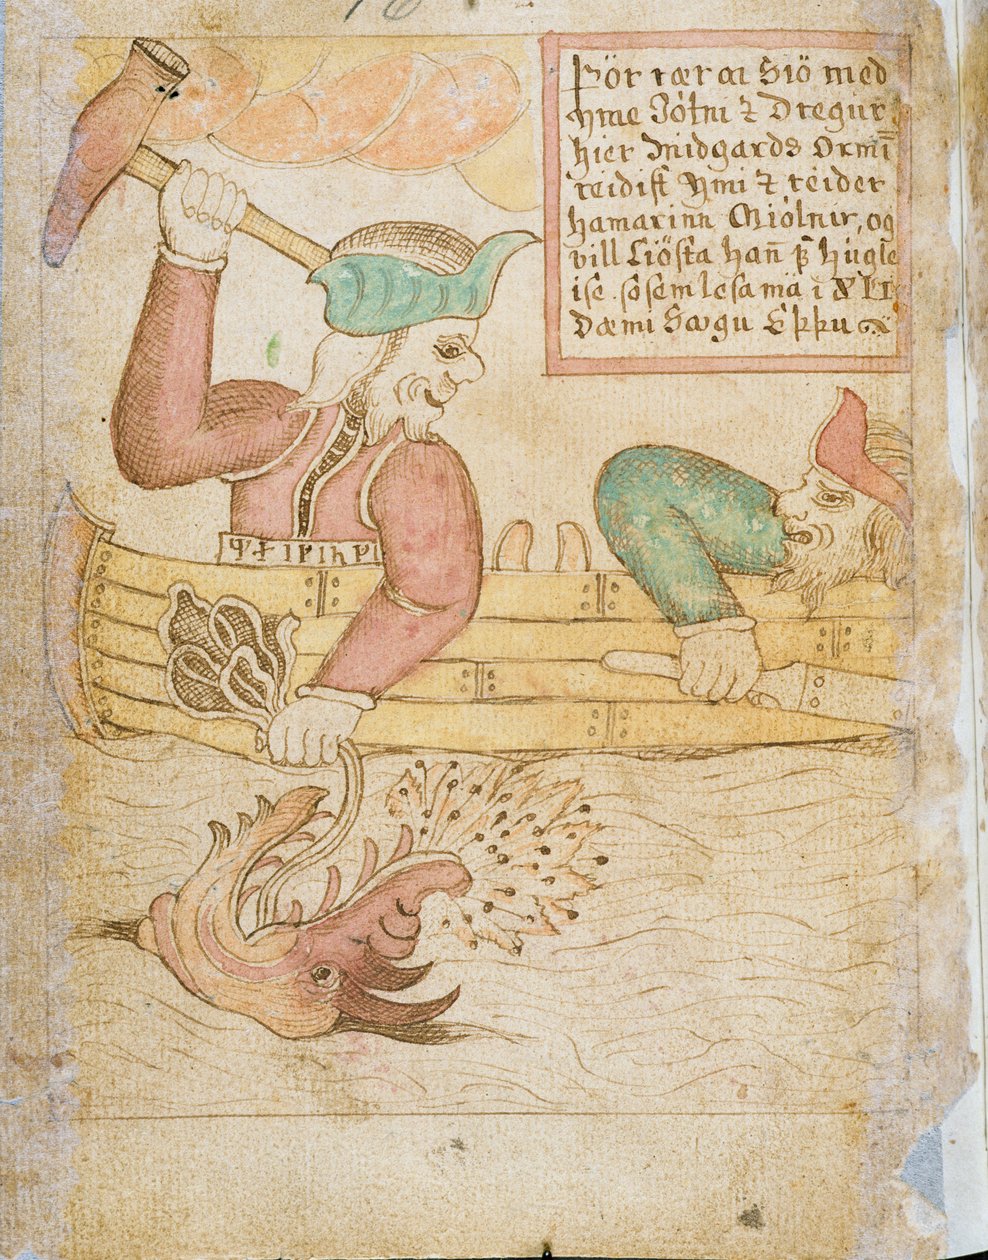 Þör rær a Siö med
yme Jötni ⁊ Dregur
hier Midgards Ormī
reidist Ymi ⁊ reider
hamarinn Miölnir, og
vill Liösta han̄
ise. so sem lesa mä i XLI
Dæmi Søgu Ekku